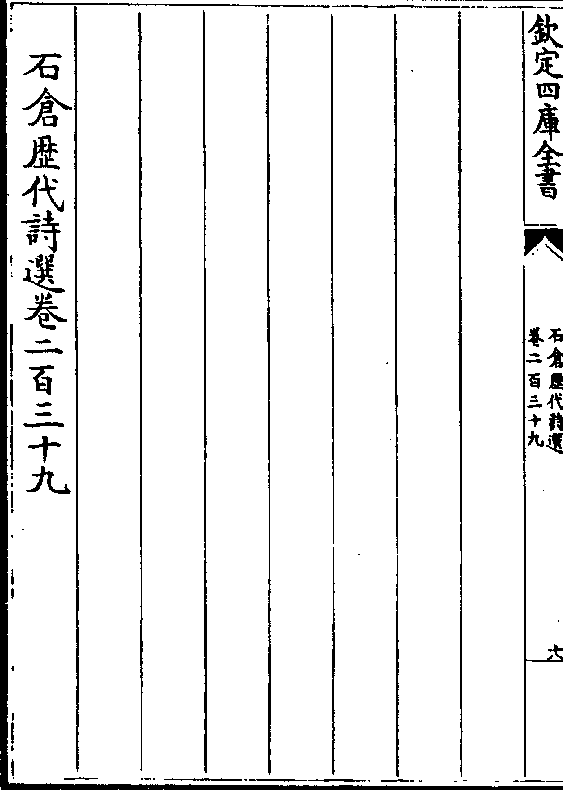 欽定四庫全書
石倉歷代詩選
卷二百三十九
六
石倉歷代詩選卷二百三十九